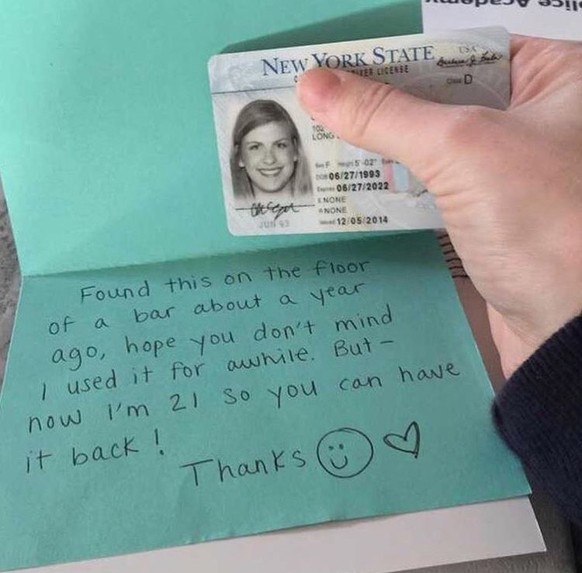 olice Academy
NEW YORK STATE USA
DRIVER LICENSE
Class D
LONG
Sex F Height 5'-02"
DOB 06/27/1993
Expires 06/27/2022
E NONE
R NONE
Issued 12/05/2014
JUN 93
Found this on the floor
of a bar about a year
ago, hope you don't mind
I used it for awhile. But-
now I'm 21 so you can have
it back!
Thanks